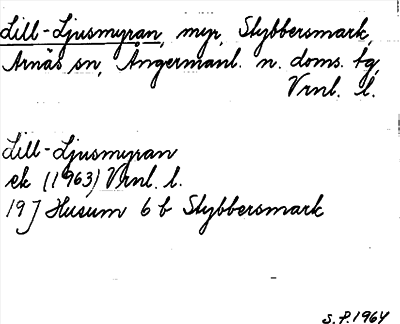 Lill-Ljusmyran, myr, Stybbersmark,
Arnäs sn, Ångermanl. n. doms. tg,
Vrnl. l.
Lill-Ljusmyran
ek (1963) Vrnl. l.
19J Husum 6 b Stybbersmark
S.P. 1964